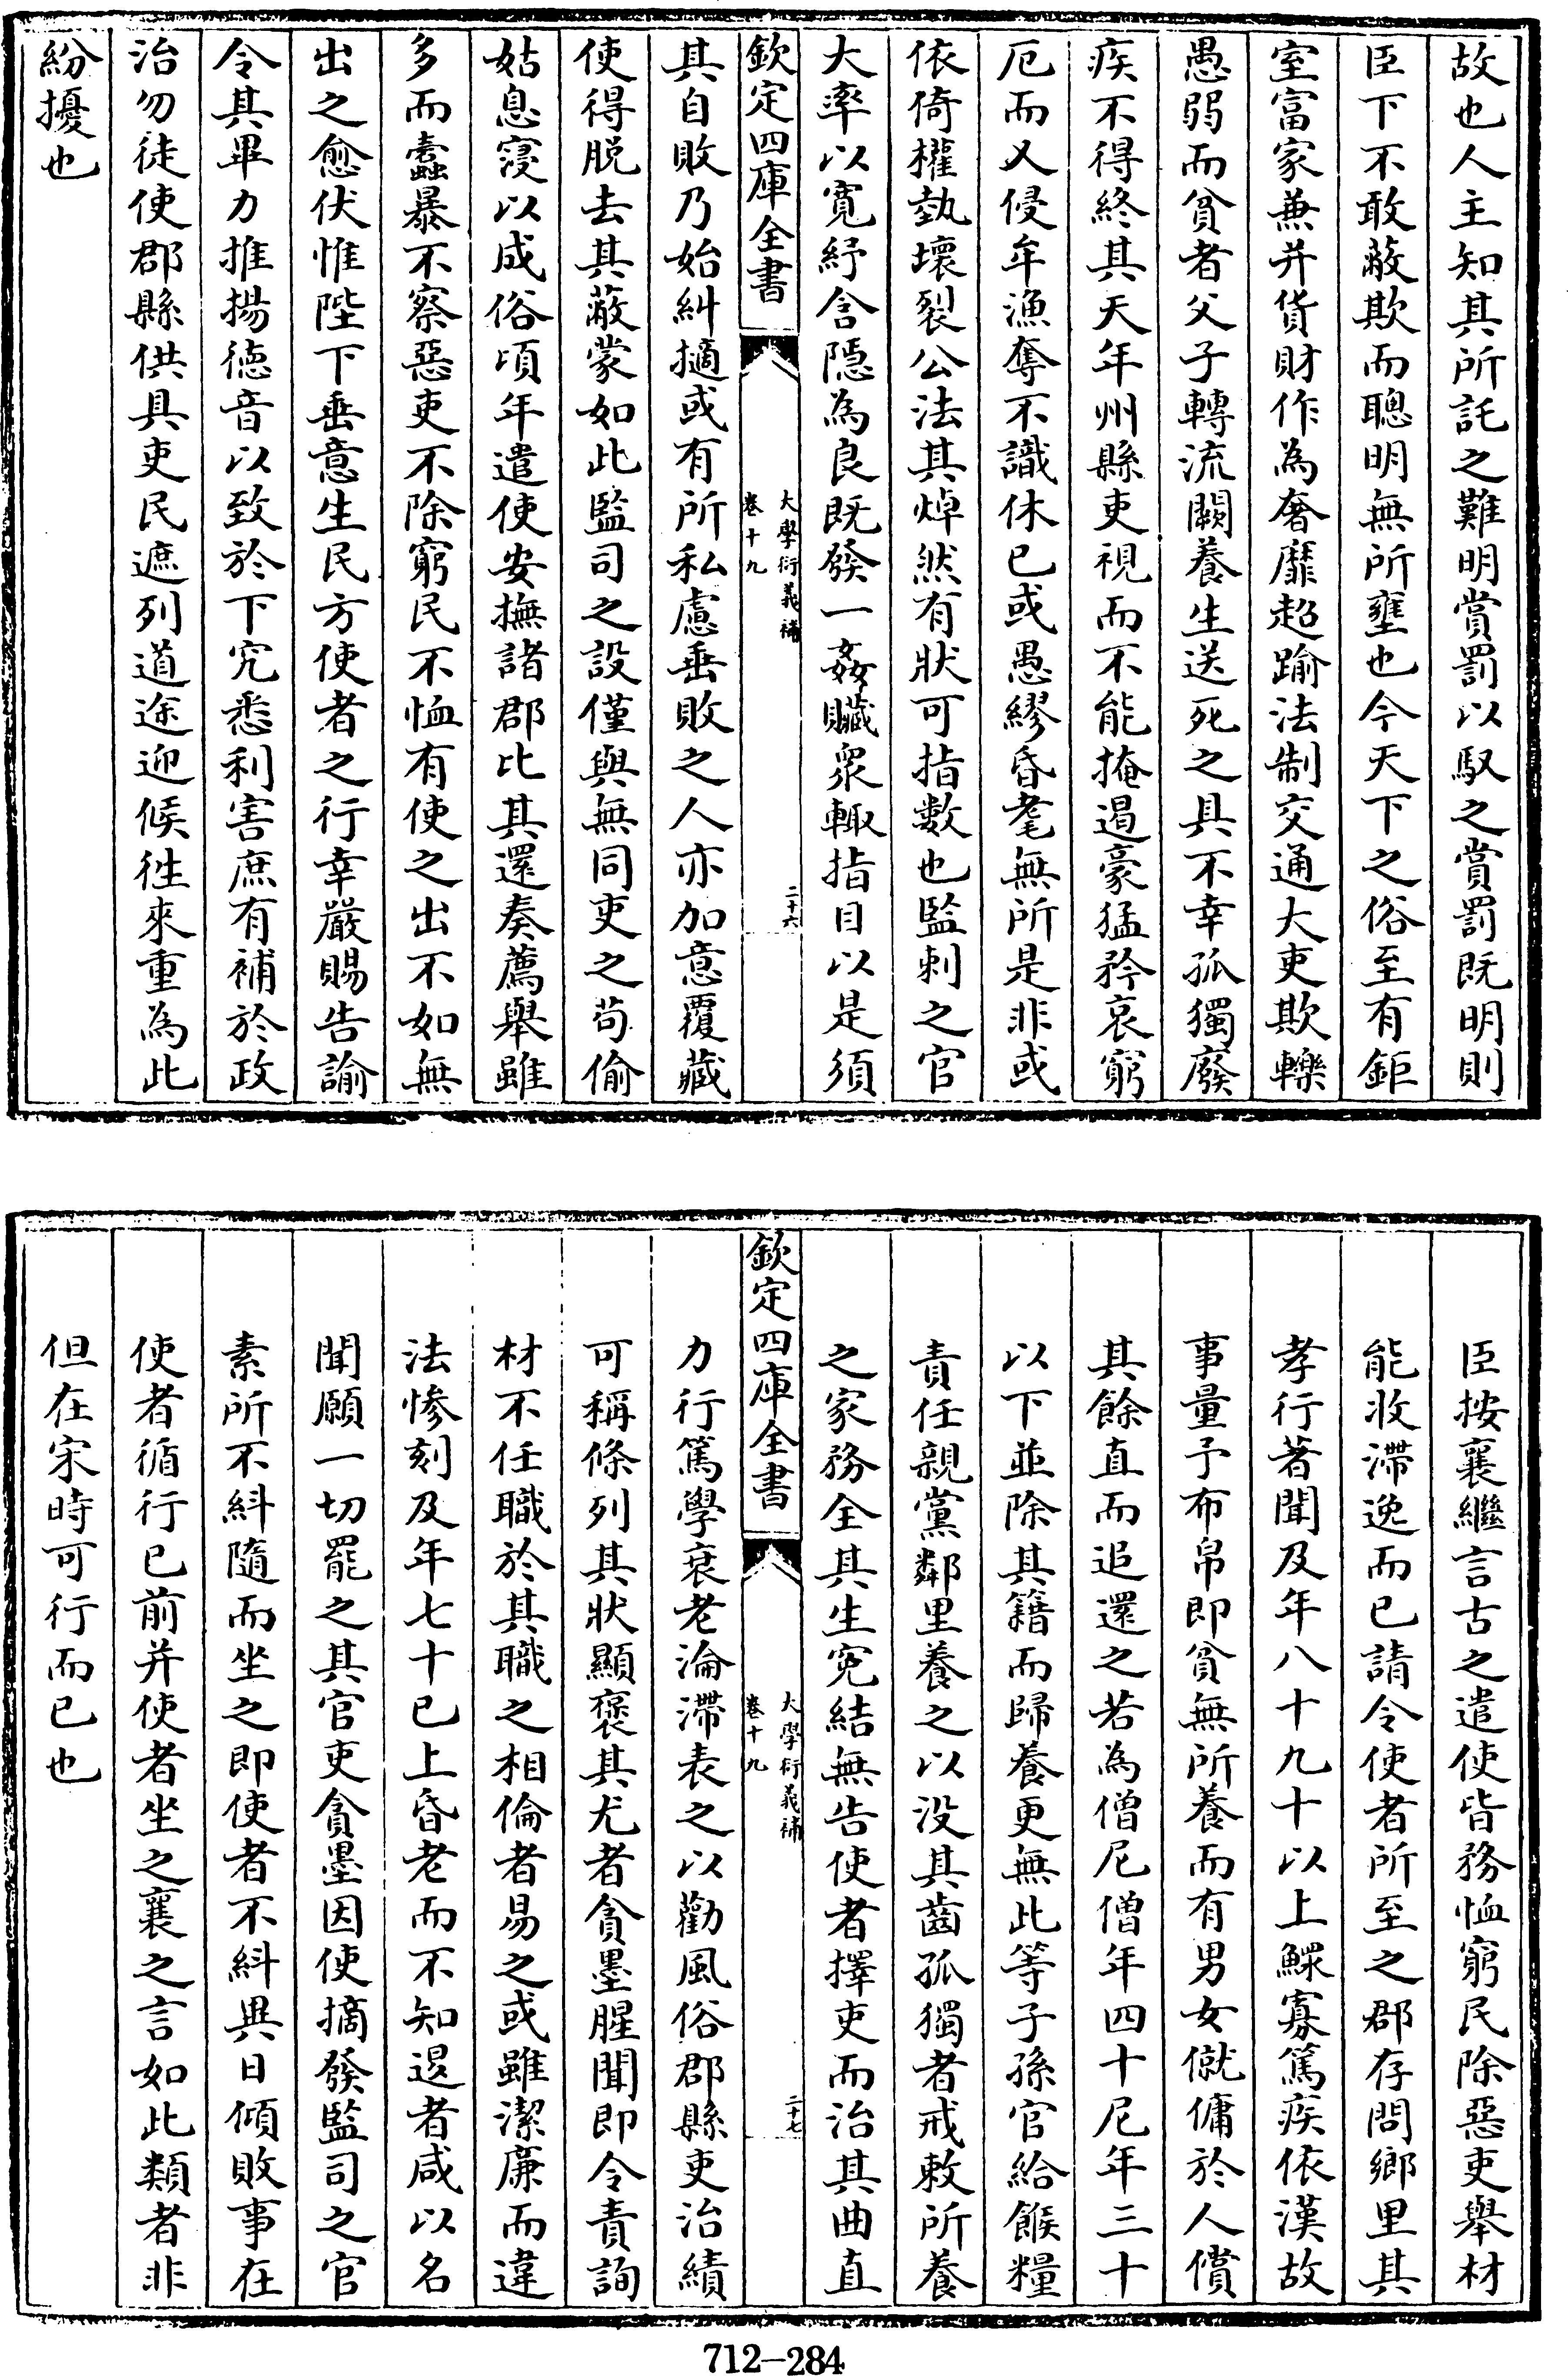 故也人主知其所託之難明賞罰以馭之賞罰既明則
臣下不敢蔽欺而聰明無所壅也今天下之俗至有鉅
室富家兼并貨財作為奢靡超踰法制交通大吏欺轢
愚弱而貧者父子轉流闕養生送死之具不幸孤獨廢
疾不得終其天年州縣吏視而不能掩遏豪猛矜哀窮
厄而又侵牟漁奪不識休已或愚繆昏耄無所是非或
依倚權埶壞裂公法其焯然有狀可指數也監刺之官
大率以寛紓含隱為良既發一姦贓衆輙指目以是須
欽定四庫全書
大學衍義補
卷十九
二十六
其自敗乃始糾擿或有所私慮垂敗之人亦加意覆藏
使得脱去其蔽蒙如此監司之設僅與無同吏之苟偷
姑息寖以成俗頃年遣使安撫諸郡比其還奏薦舉雖
多而蠧暴不察惡吏不除窮民不恤有使之出不如無
出之愈伏惟陛下垂意生民方使者之行幸嚴賜告諭
令其畢力推揚徳音以致於下究悉利害庶有補於政
治勿徒使郡縣供具吏民遮列道途迎候徃來重為此
紛擾也
臣按襄繼言古之遣使皆務恤窮民除惡吏舉材
能收滯逸而已請令使者所至之郡存問鄉里其
孝行著聞及年八十九十以上鰥寡篤疾依漢故
事量予布帛即貧無所養而有男女僦傭於人償
其餘直而追還之若為僧尼僧年四十尼年三十
以下並除其籍而歸養更無此等子孫官給餱糧
責任親黨鄰里養之以没其齒孤獨者戒敕所養
之家務全其生寃結無告使者擇吏而治其曲直
欽定四庫全書
大學衍義補
卷十九
二十七
力行篤學衰老淪滯表之以勸風俗郡縣吏治績
可稱條列其狀顯褒其尤者貪墨腥聞即令責詢
材不任職於其職之相倫者易之或雖潔廉而違
法慘刻及年七十已上昏老而不知退者咸以名
聞願一切罷之其官吏貪墨因使摘發監司之官
素所不糾隨而坐之即使者不糾異日傾敗事在
使者循行已前并使者坐之襄之言如此類者非
但在宋時可行而已也
712-284